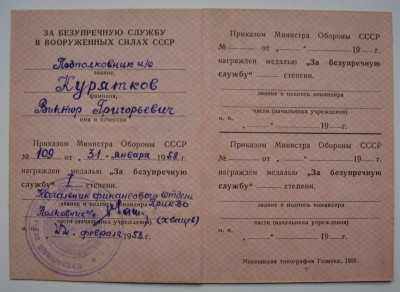 ЗА БЕЗУПРЕЧНУЮ СЛУЖБУ
В ВООРУЖЕННЫХ СИЛАХ СССР
Подполковник и/с
звание,
Курятков
фамилия,
Виктор Григорьевич
имя и отчество
Приказом Министра Обороны СССР
№ 109 от „31“ января 1958 г.
награжден медалью „За безупречную
службу“ I степени.
Начальник финансового отдела
звание и подпись командира
Полковник и/с (Хващев)
части (начальника учреждения)
м. п. „22“ февраля 1958 г.
Приказом Министра Обороны СССР
№ от „ “ 19 г.
награжден медалью „За безупречную
службу“ степени.
звание и подпись командира
части (начальника учреждения)
м. п. „ “ 19 г.
Приказом Министра Обороны СССР
№ от „ “ 19 г.
награжден медалью „За безупречную
службу“ степени.
звание и подпись командира
части (начальника учреждения)
м. п. „ “ 19 г.
Московская типография Гознака. 1958.